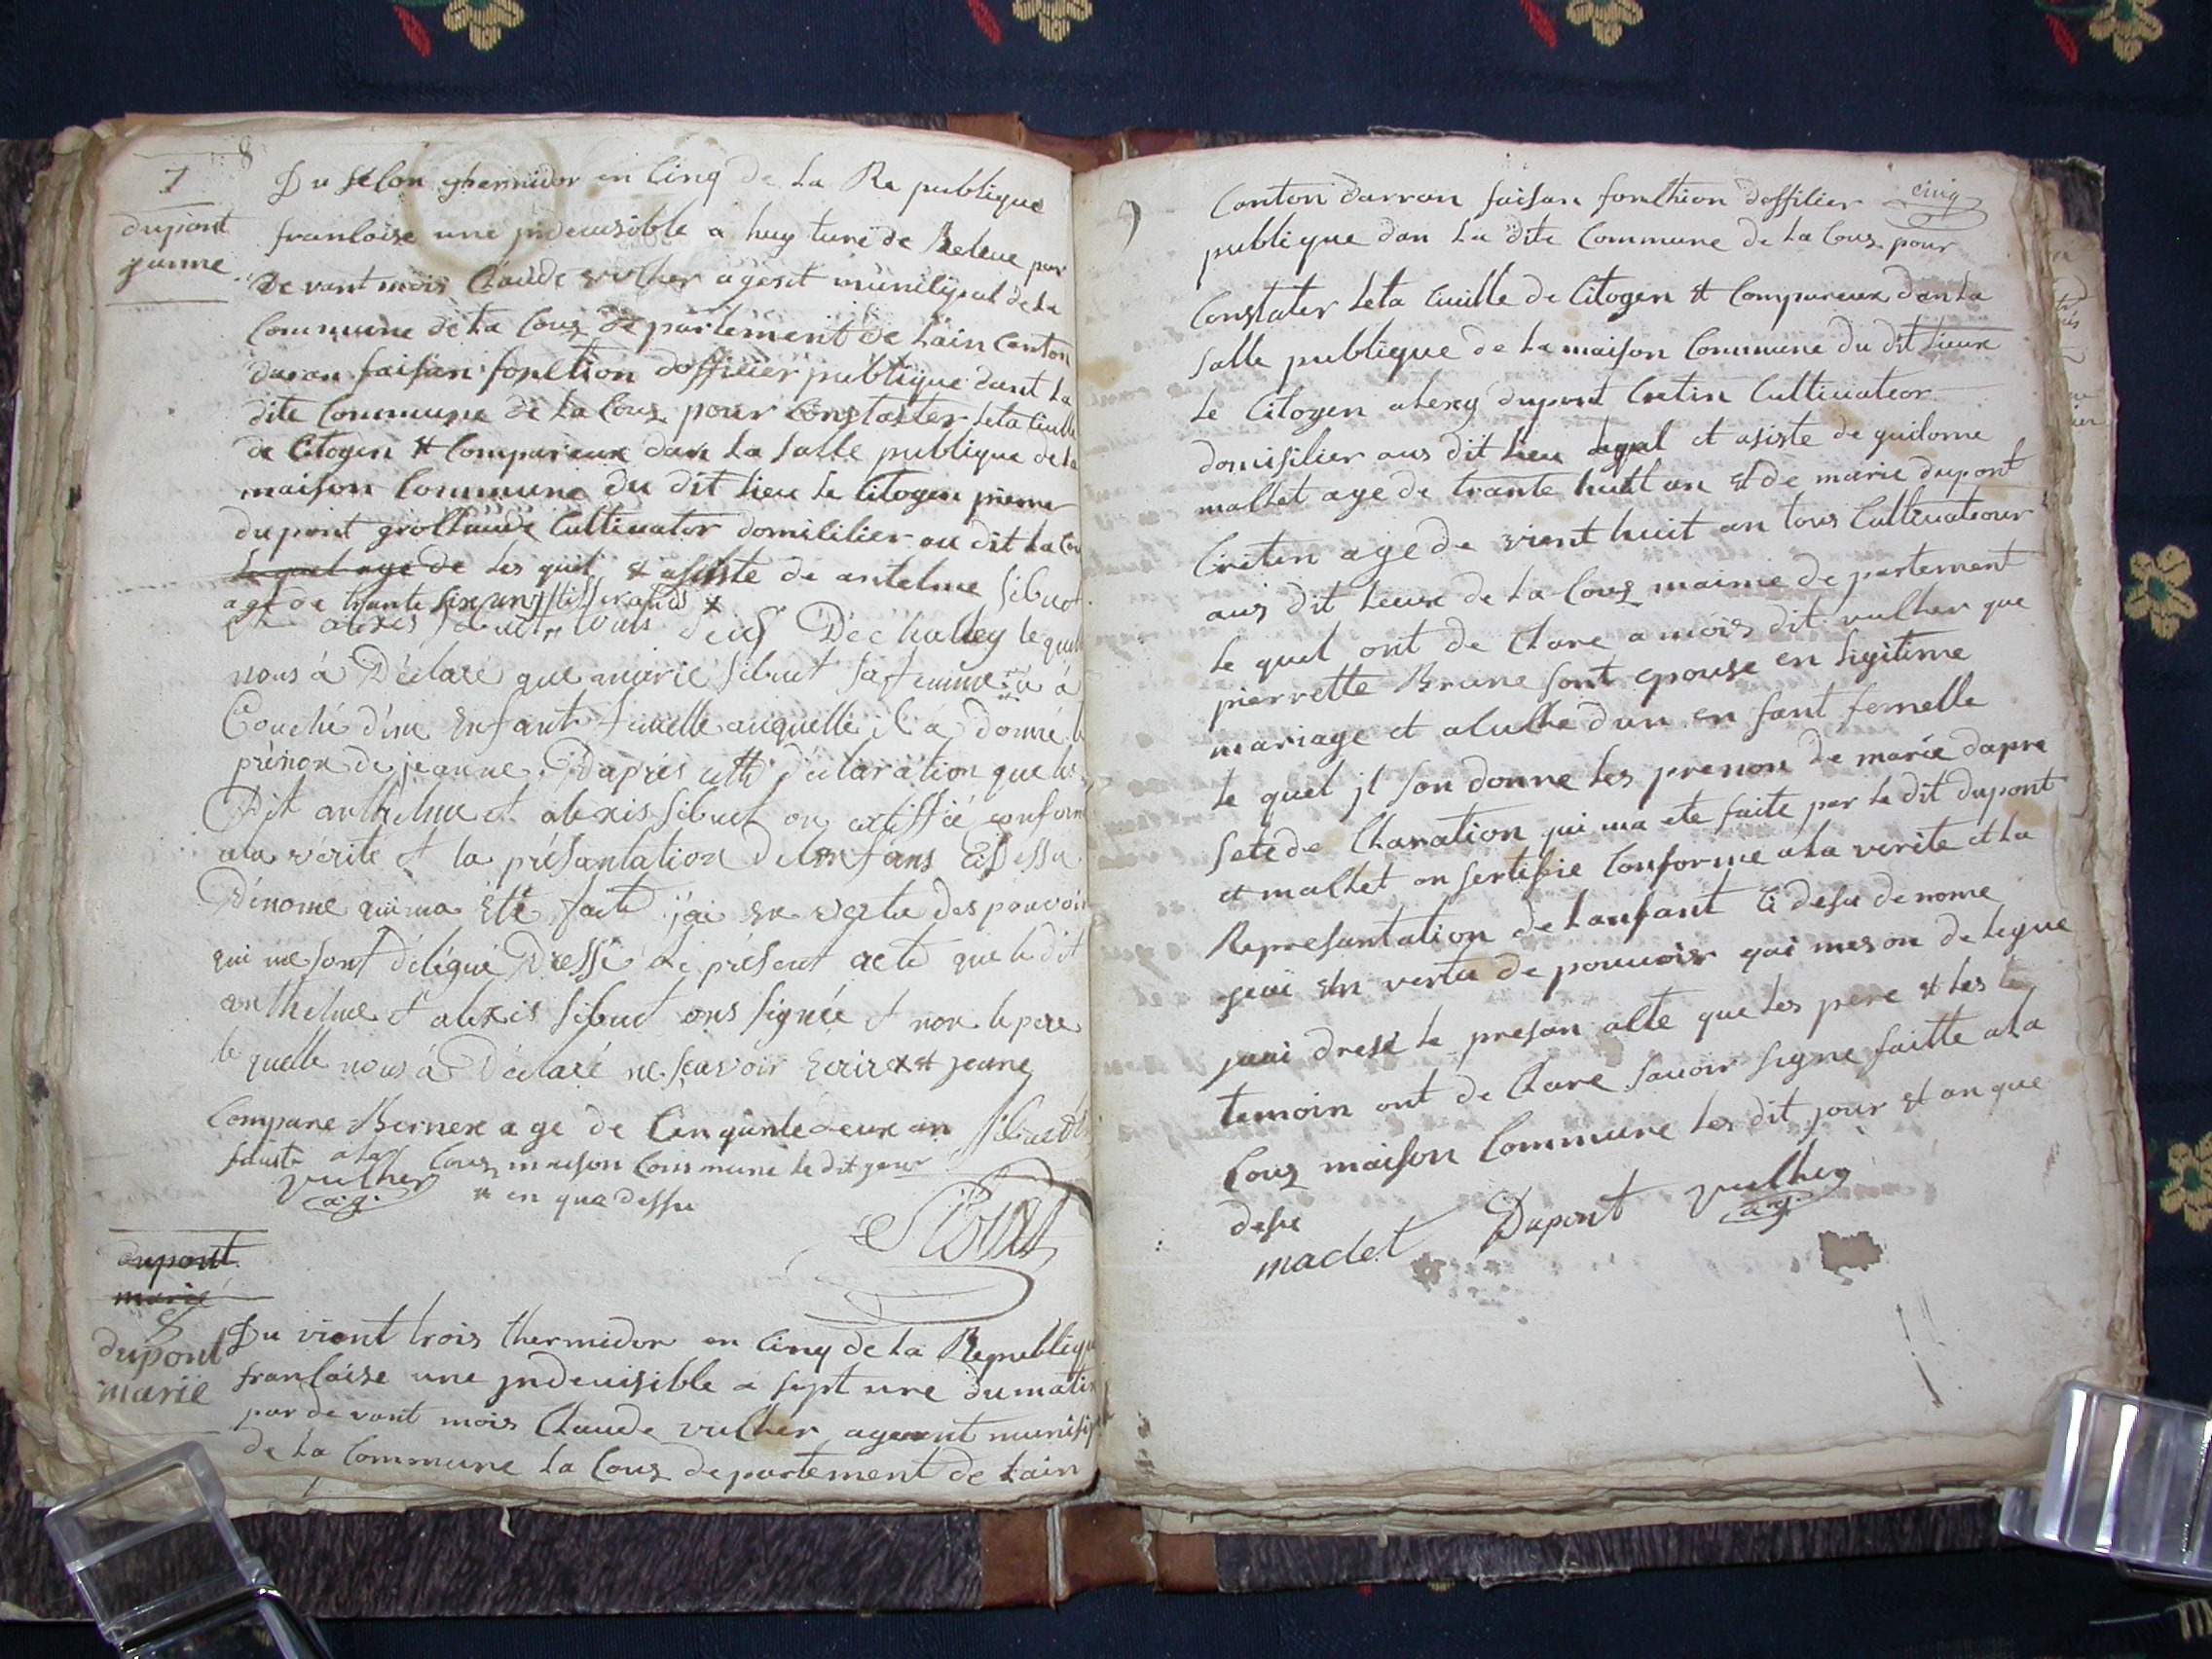 8
7
dupont
janne
Du selon thermidor en Cinq de La Re publique
franloise une jndeuisible a huy ture de Releve par
De vant mois Claude vulher agest munilipal de La
Commune de La Couz De partement de Lain Canton
daran faisan fonltion dofficier publique dant La
dite Commune de La Couz pour Constater Leta Ciuille
de Citogen et Compareux dan La salle publique de La
maison Commune du dit Lieu Le Citogen pierre
dupont grollaude Cultiuator domililier au dit La Cou
Le quel age de Les quel et asiste de antelme Sibuet
age de trante six an tisserands et
alexis sibuet tous deux De challey le quel
nous à Déclaré que marie Sibuet sa femme a à
Couché d'un Enfant femelle auquelle il à donné le
prénon de jeanne. D'après cette déclaration que les
Dit anthelme et alexis Sibuet on certiffié conforme
ala vérité et la présantation de lenfans Cidessu
Dénomé qui ma été faite j'ai en vertu des pouvoir
qui me sont délégué Dressé Le présent acte que le dit
anthelme et alexis Sibuet ons signée et non le pere
le quelle nous à Déclaré ne scavoir Ecrire et jeane
Compane Bernex age de Cinquntedeux an Sibuet
faiste ala Couz maison Commune le dit jour
vulher * en que dessu
a.g.
Sibuet
dupont
marie
8
dupont
marie
Du vient trois thermidor en Cinq de La Republique
franlaise une jndeuisible a sept ure du matin
par de vant mois Claude vulher agent munisip
de La Commune La Couz departement de Lain
Canton darran faisan fonlthion doffilier cinq
publique dan La dite Commune de La Couz pour
Constater Leta Ciuille de Citogen et Compareux dan La
salle publique de La maison Commune du dit Lieux
Le Citogen alexy dupont Cretin Cultiuateor
domisilier aus dit Lieu Lequel et asiste de guilome
mallet age de trante huit an et de marie dupont
Cretin age de vient huit an tous Cultiuateour
aus dit Lieux de La Couz maime de partement
Le quel ont de Clare a mois dit vulher que
pierrette Brune sont epouse en Ligitime
mariage et aluche dun en fant femelle
Le quel jl son donne Les prenon de marie dapre
sete de Claration qui ma ete faite par Le dit dupont
et mallet on sertifie Conforme ala verite et La
Represantation de Lanfant Ci desu de nome
jeai En vertu de pouuoir qui mes on de Legue
jeai dresé Le presan alte que Les pere et Les te
temoin ont de Clare sauoir signe faitte ala
Couz maison Commune Les dit jour et an que
desu
maclet Dupont vulher
a.g.